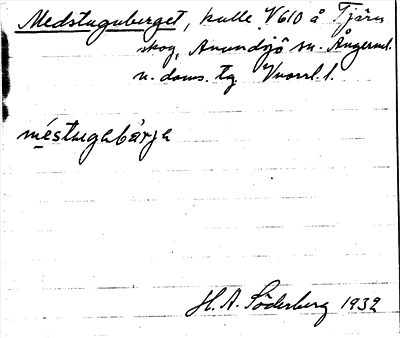 Medstuguberget, kulle V610 å Tjärn
skog, Anundsjö sn. Ångerml.
n. doms. tg
méstugebárje
H. A. Söderberg 1932